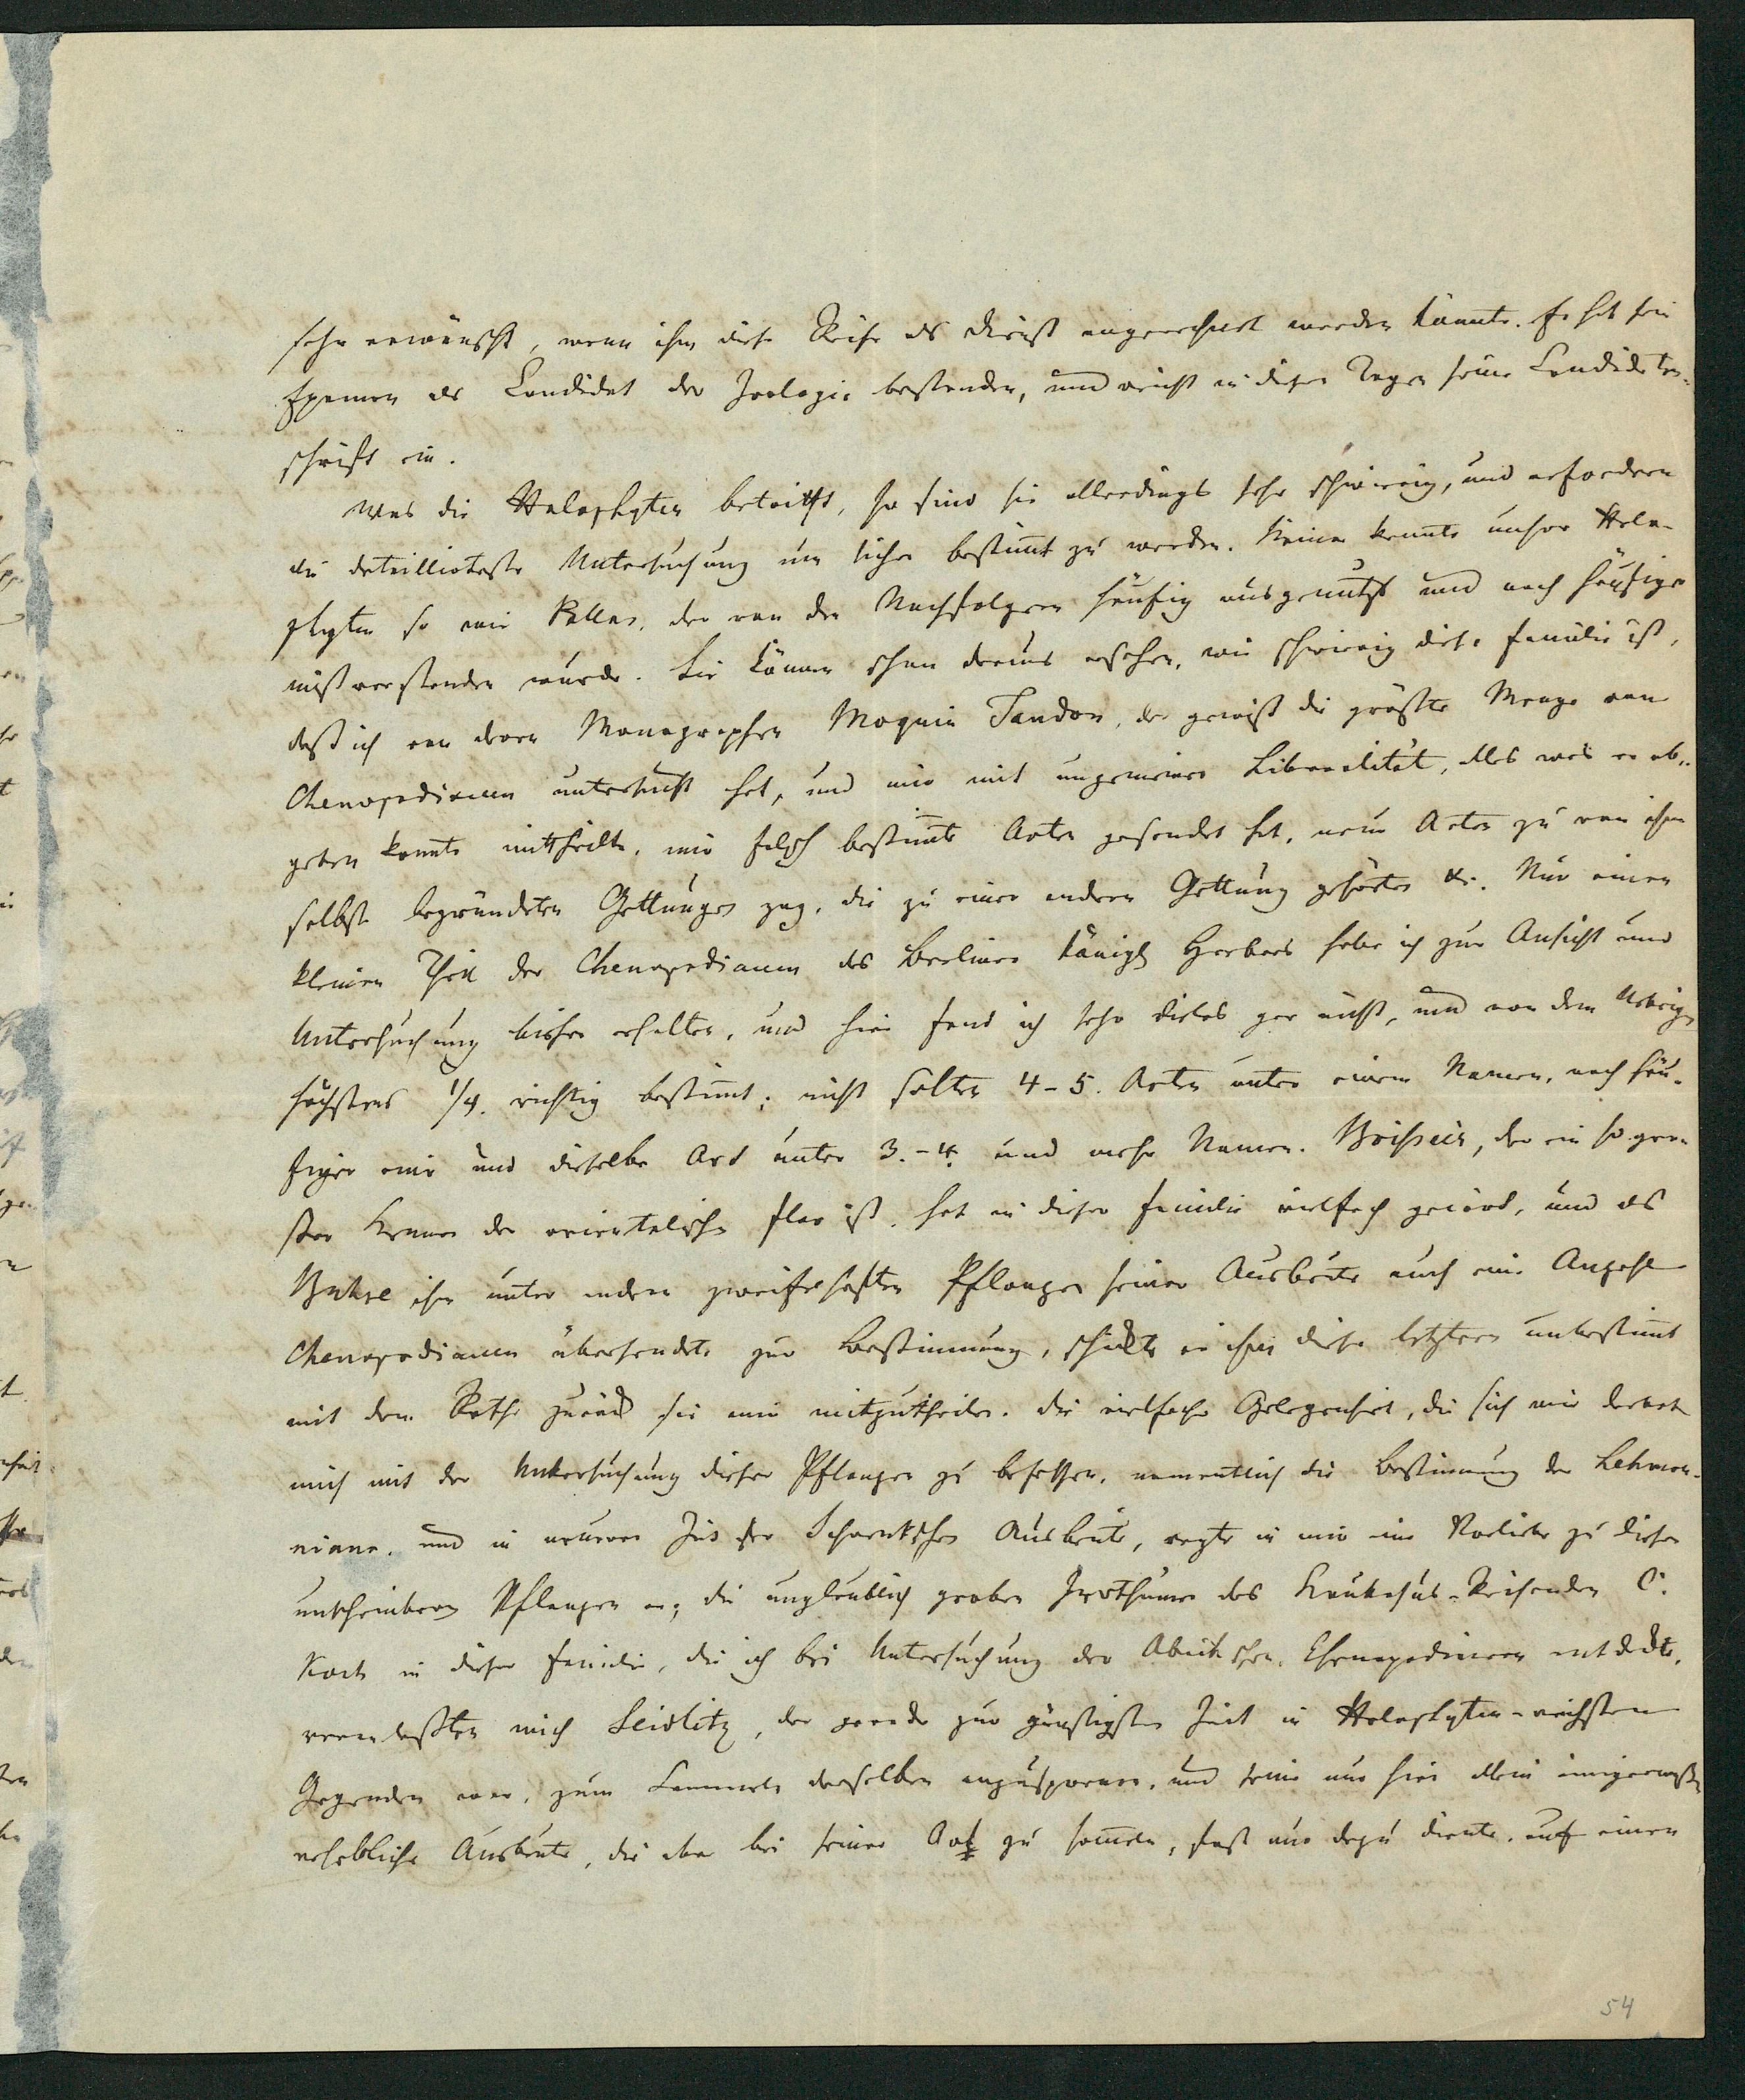 sehr erwünscht, wenn ihm diese Reise als Dienst angerechnet werden könnte. Er hat sein
Examen als Candidat der Zoologie bestanden, und reicht in diesen Tagen seine Candidaten-
schrift ein.
Was die Halophyten betrifft, so sind sie allerdings sehr schwierig, und erfordern
die detaillirteste Untersuchung um sicher bestimt zu werden. Keiner kannte unsere Halo-
phyten so wie Pallas, der von den Nachfolgern häufig ausgenutzt und noch häufiger
mißverstanden wurde. Sie können schon daraus ersehen, wie schwierig diese Familie ist,
daß ich von deren Monographen Moquin Tandon, der gewiß die größte Menge von
Chenopodiaceen untersucht hat, und mir mit ungemeiner Liberalität, alles was er ab-
geben konnte mittheilte, mir falsch bestimte Arten gesendet hat, neue Arten zu von ihm
selbst begründeten Gattungen zog, die zu einer andern Gattung gehörten &c. Nur einen
kleinen Theil der Chenopodiaceen des Berliner Königl Herbars habe ich zur Ansicht und
Untersuchung bisher erhalten, und hier fand ich sehr vieles gar nicht, und von dem Uebrigen
höchstens 1/4. richtig bestimt; nicht selten 4-5. Arten unter einem Namen, noch häu-
figer eine und dieselbe Art unter 3.-4. und mehr Namen. Boissier, der ein so gro-
ßer Kenner der orientalischen Flor ist, hat in dieser Familie vielfach geirrt, und als
Buhse ihm unter andern zweifelhaften Pflanzen seiner Ausbeute auch eine Anzahl
Chenopodiaceen übersendete zur Bestimmung, schickte er ihm diese letztern unbestimt
mit dem Rathe zurück sie mir mitzutheilen. Die vielfache Gelegenheit, die sich mir darbot
mich mit der Untersuchung dieser Pflanzen zu befassen, namentlich die Bestimmung der Lehman-
niana, und in neuerer Zeit der Schrenkschen Ausbeute, regte in mir eine Vorliebe zu diesen
unscheinbaren Pflanzen an; die unglaublich groben Irrthümer des Kaukasus-Reisenden C.
Koch in dieser Familie, die ich bei Untersuchung der Abichschen Chenopodiaceen entdeckte,
veranlaßten mich Seidlitz, der gerade zur günstigsten Zeit in Halophyten-reichsten
Gegenden war, zum Sammeln derselben anzuspornen, und seine nur hier allein einigermaßen
erhebliche Ausbeute, die aber bei seiner Art zu sameln, fast nur dazu diente, auf einen
54